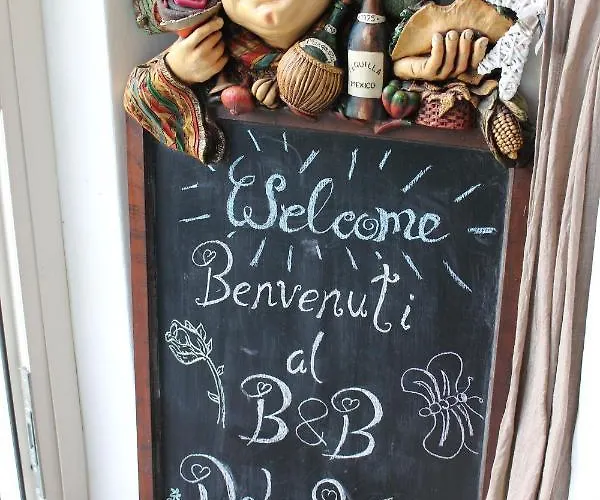 TEQUILLA
MEXICO
Welcome
Benvenuti
al
B&B